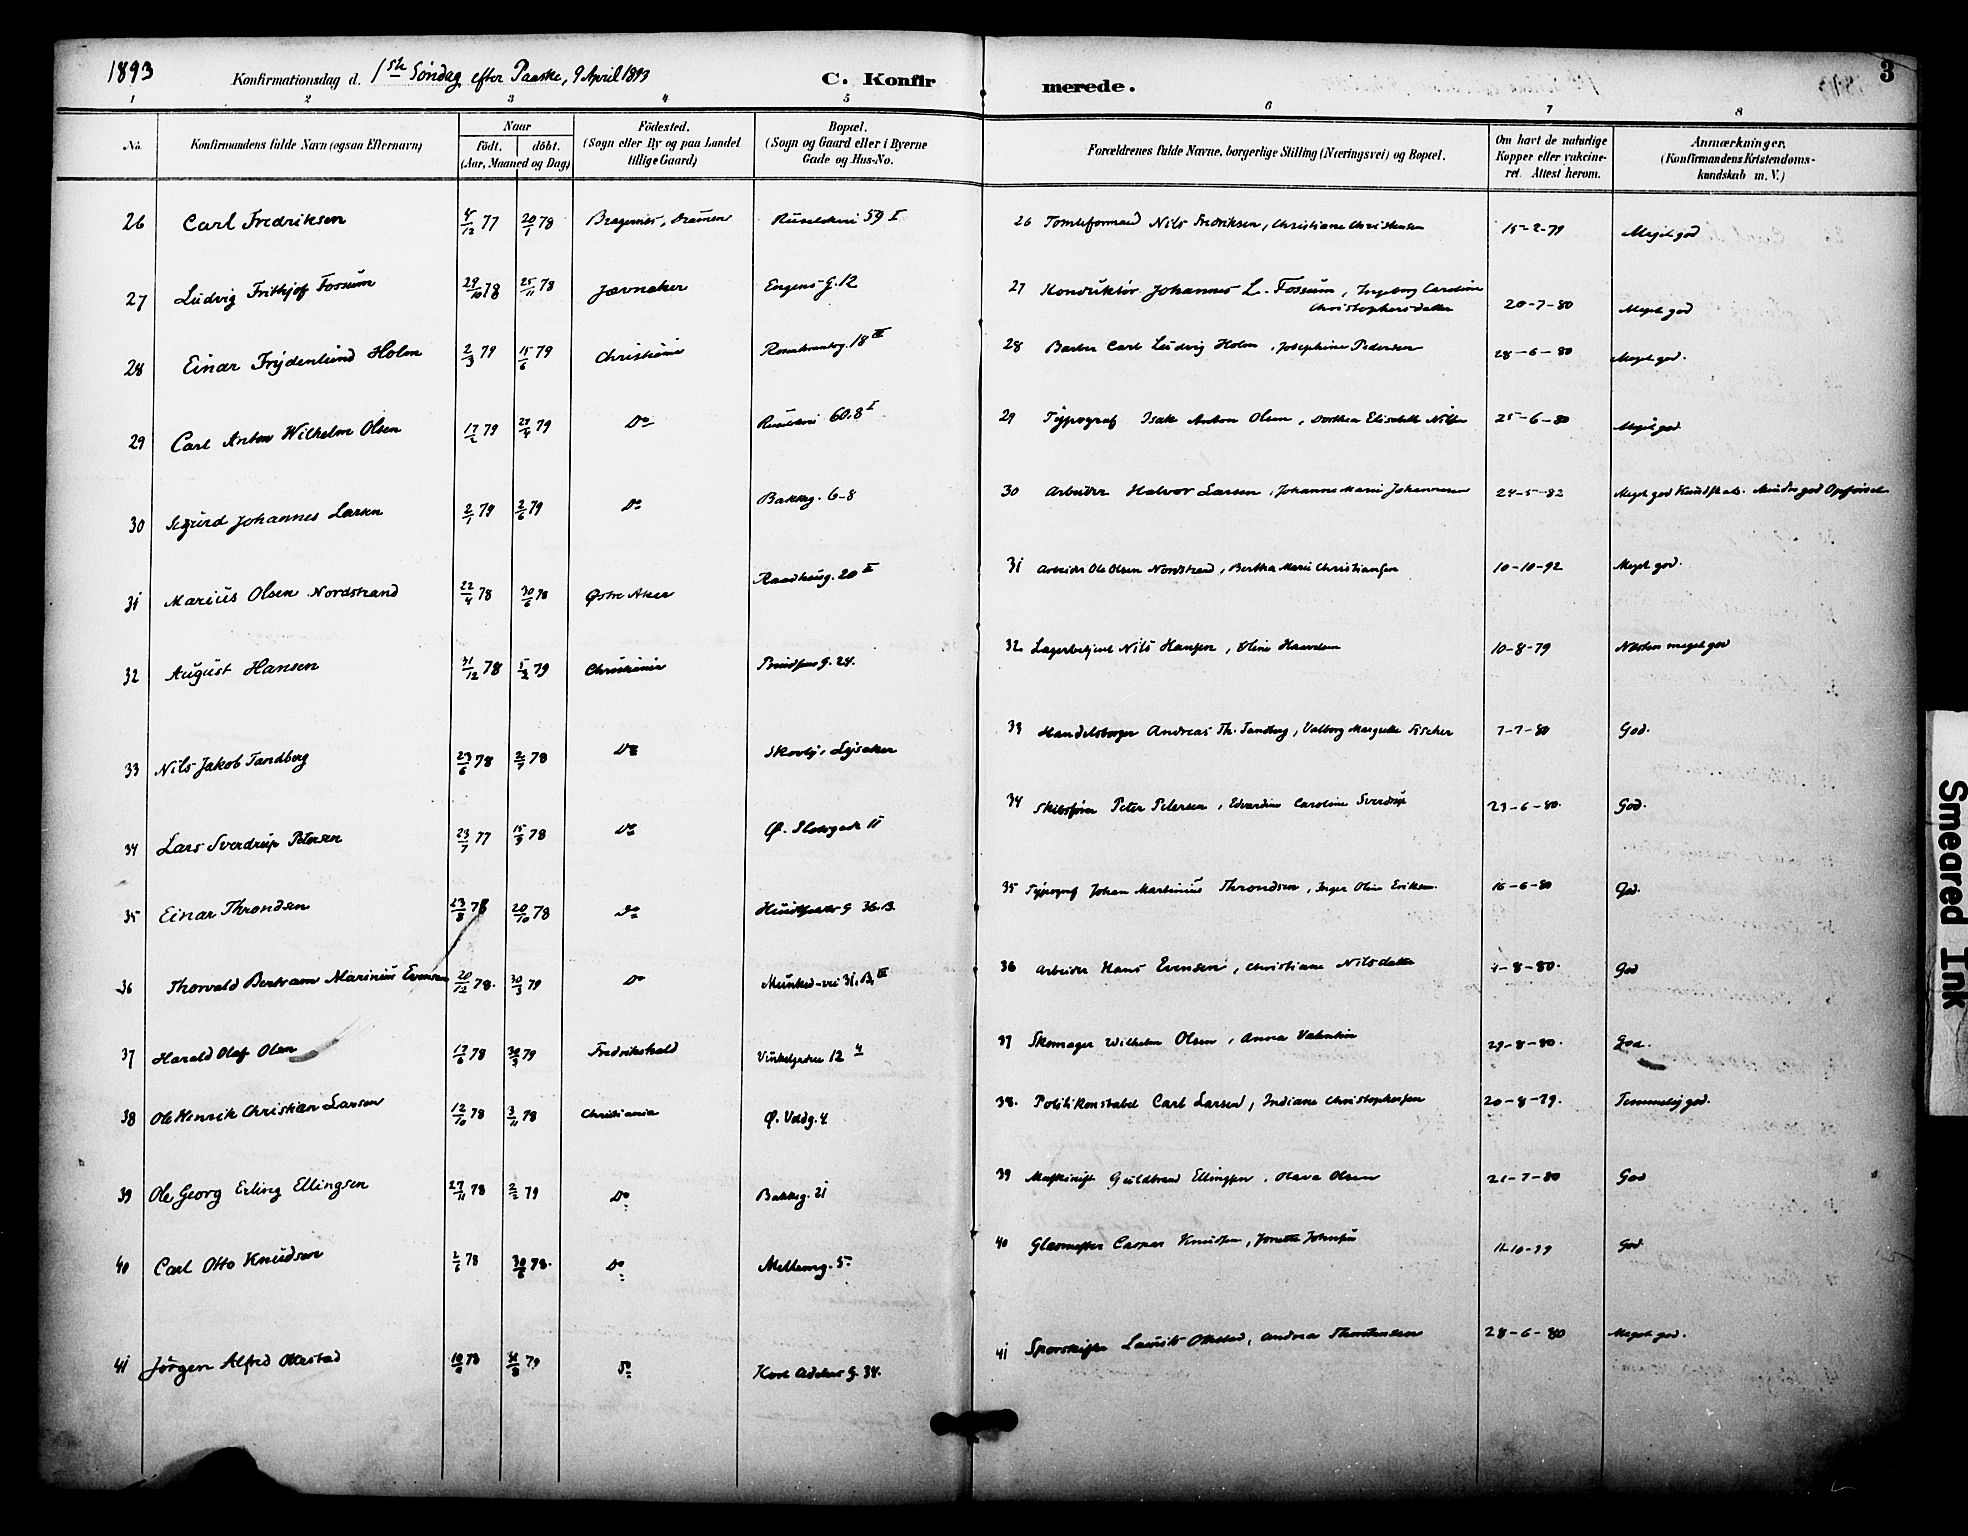 1893 Konfirmationsdag d. 1ste Söndag efter Paaske, 9 April 1893 C. Konfirmerede. 3
1 2 3 4 5 6 7 8
No. Konfirmandens fulde Navn (ogsaa Efternavn) Naar födt. döbt. (Aar, Maaned og Dag) Födested. (Sogn eller By og paa Landet tillige Gaard) Bopæl. (Sogn og Gaard eller i Byerne Gade og Hus-No. Forældrenes fulde Navne, borgerlige Stilling (Næringsvei) og Bopæl. Om havt de naturlige Kopper eller vakcineret. Attest herom. Anmærkninger. (Konfirmandens Kristendomskundskab m. V.)
26 Carl Fredriksen 4/12 77 20/1 78 Bragernes, Dramen 59 I 26 Tomteformand Nils Fredriksen, Christiane Christensen 15-2-79 Meget god
27 Ludvig Frithjof Fossum 29/10 78 25/11 78 Jævnaker Engens G. 12 27 Konduktör Johannes L. Fossum, Ingeborg Caroline Christophersdatter 20-7-80 Meget god
28 Einar Frydenlund Holm 2/3 79 15/6 79 Christiania Rosenkrantzg. 18 III 28 Barber Carl Ludvig Holm, Josephine Pedersen 28-6-80 Meget god.
29 Carl Anton Wilhelm Olsen 17/2 79 27/4 79 Do 60.8 I 29 Typograf Isak Anton Olsen, Dorthea Elisabeth Nilsen 25-6-80 Meget god
30 Sigurd Johannes Larsen 2/1 79 2/6 79 Do Bakkeg. 6-8 30 Arbeider Halvor Larsen, Johanne Marie Johannesen 24-5-82 Meget god Kundskab. Mindre god Opførsel
31 Marius Olsen Nordstrand 22/4 78 30/6 78 Østre Aker Raadhusg. 20 II 31 Arbeider Ole Olsen Nordstrand, Bertha Marie Christiansen 10-10-92 Meget god.
32 August Hansen 31/12 78 5/2 79 Christiania G. 24. 32 Lagerbetjent Nils Hansen, Oline 10-8-79 Næsten meget god
33 Nils Jakob Tandberg 23/6 78 2/7 78 Do Skovly, Lysaker 33 Handelsborger Andreas Th. Tandberg, Valborg Margrethe Fischer 7-7-80 God.
34 Lars Sverdrup Petersen 23/7 77 15/9 78 Do Ø. Slotsgade 11 34 Skibsfører Peter Petersen, Edvardine Caroline Sverdrup 23-6-80. God.
35 Einar Throndsen 23/8 78 20/10 78 Do G 36.B. 35 Typograf Johan Martinius Throndsen, Inger Oline Eriksen. 16-6-80 God.
36 Thorvald Bertram Marinius Evensen 20/12 78. 30/3 79 Do Munked-vei 31.B. III 36 Arbeider Hans Evensen, Christiane Nilsdatter 4-8-80. God
37 Harald Olaf Olsen 17/6 78 30/3 79 Fredrikshald Vinkelgaden 12 37 Skomager Wilhelm Olsen, Anna Valentin 29-8-80. God.
38 Ole Henrik Christian Larsen 12/10 78 3/11 78 Christiania Ø. Voldg. 4 38. Politikonstabel Carl Larsen, Indiane Christophersen 20-8-79. Temmelig god.
39 Ole Georg Erling Ellingsen 27/11 78 2/2 79 Do Bakkeg. 21 39 Maskinist Guldbrand Ellingsen, Olava Olsen 21-7-80 God
40 Carl Otto Knudsen 2/6 78 30/6 78. Do Mellemg. 5 40 Glasmester Caspar Knudsen, Jonette Johnsen 11-10-79 God
41 Jörgen Alfred Ottestad 10/9 78 31/8 79 Do G. 34. 41 Sporskifter Laurits Ottestad, Andrea Thorstensen 28-6-80 Meget god.
Smeared Ink